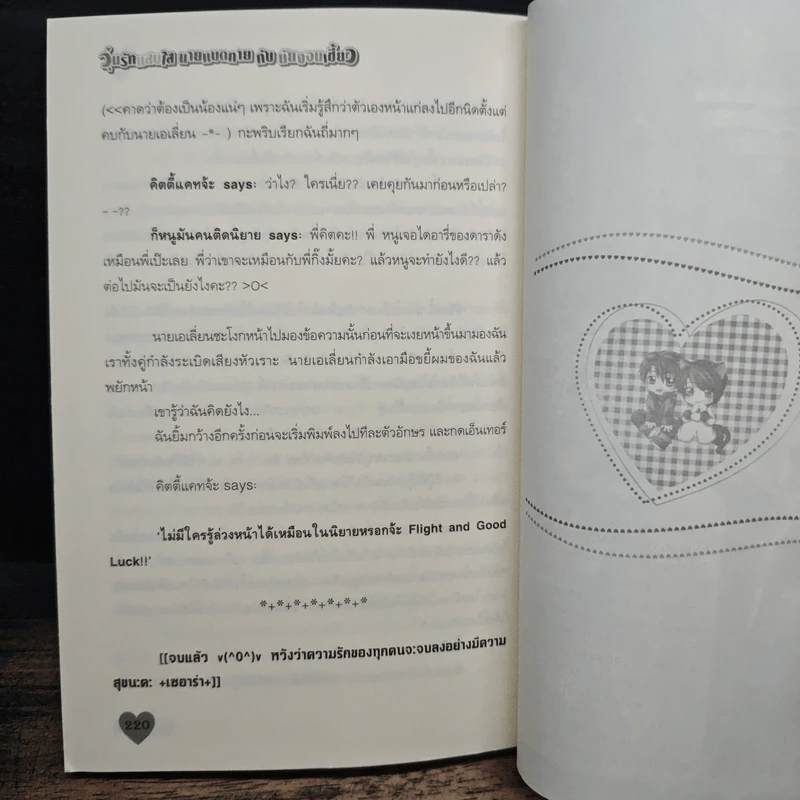 วุ่นรักแสนใส นายแบดกาย กับ ยัยจอมเฮี้ยว
(<<คาดว่าต้องเป็นน้องแน่ๆ เพราะฉันเริ่มรู้สึกว่าตัวเองหน้าแก่ลงไปอีกนิดตั้งแต่
คบกับนายเอเลี่ยน -*- ) กะพริบเรียกฉันถี่มากๆ
คิตตี้แคทจ้ะ says: ว่าไง? ใครเนี่ย?? เคยคุยกันมาก่อนหรือเปล่า?
- -??
ก็หนูมันคนติดนิยาย says: พี่คิตคะ!! พี่ หนูเจอไดอารี่ของดาราดัง
เหมือนพี่เป๊ะเลย พี่ว่าเขาจะเหมือนกับพี่กิ๊งมั้ยคะ? แล้วหนูจะทำยังไงดี?? แล้ว
ต่อไปมันจะเป็นยังไงคะ?? >O<
นายเอเลี่ยนชะโงกหน้าไปมองข้อความนั้นก่อนที่จะเงยหน้าขึ้นมามองฉัน
เราทั้งคู่กำลังระเบิดเสียงหัวเราะ นายเอเลี่ยนกำลังเอามือขยี้ผมของฉันแล้ว
พยักหน้า
เขารู้ว่าฉันคิดยังไง...
ฉันยิ้มกว้างอีกครั้งก่อนจะเริ่มพิมพ์ลงไปทีละตัวอักษร และกดเอ็นเทอร์
คิตตี้แคทจ้ะ says:
'ไม่มีใครรู้ล่วงหน้าได้เหมือนในนิยายหรอกจ้ะ Flight and Good
Luck!!'
*+*+*+*+*+*+*+*
[[จบแล้ว v(^0^)v หวังว่าความรักของทุกคนจะจบลงอย่างมีความ
สุขนะคะ +เซอาร่า+]]
220